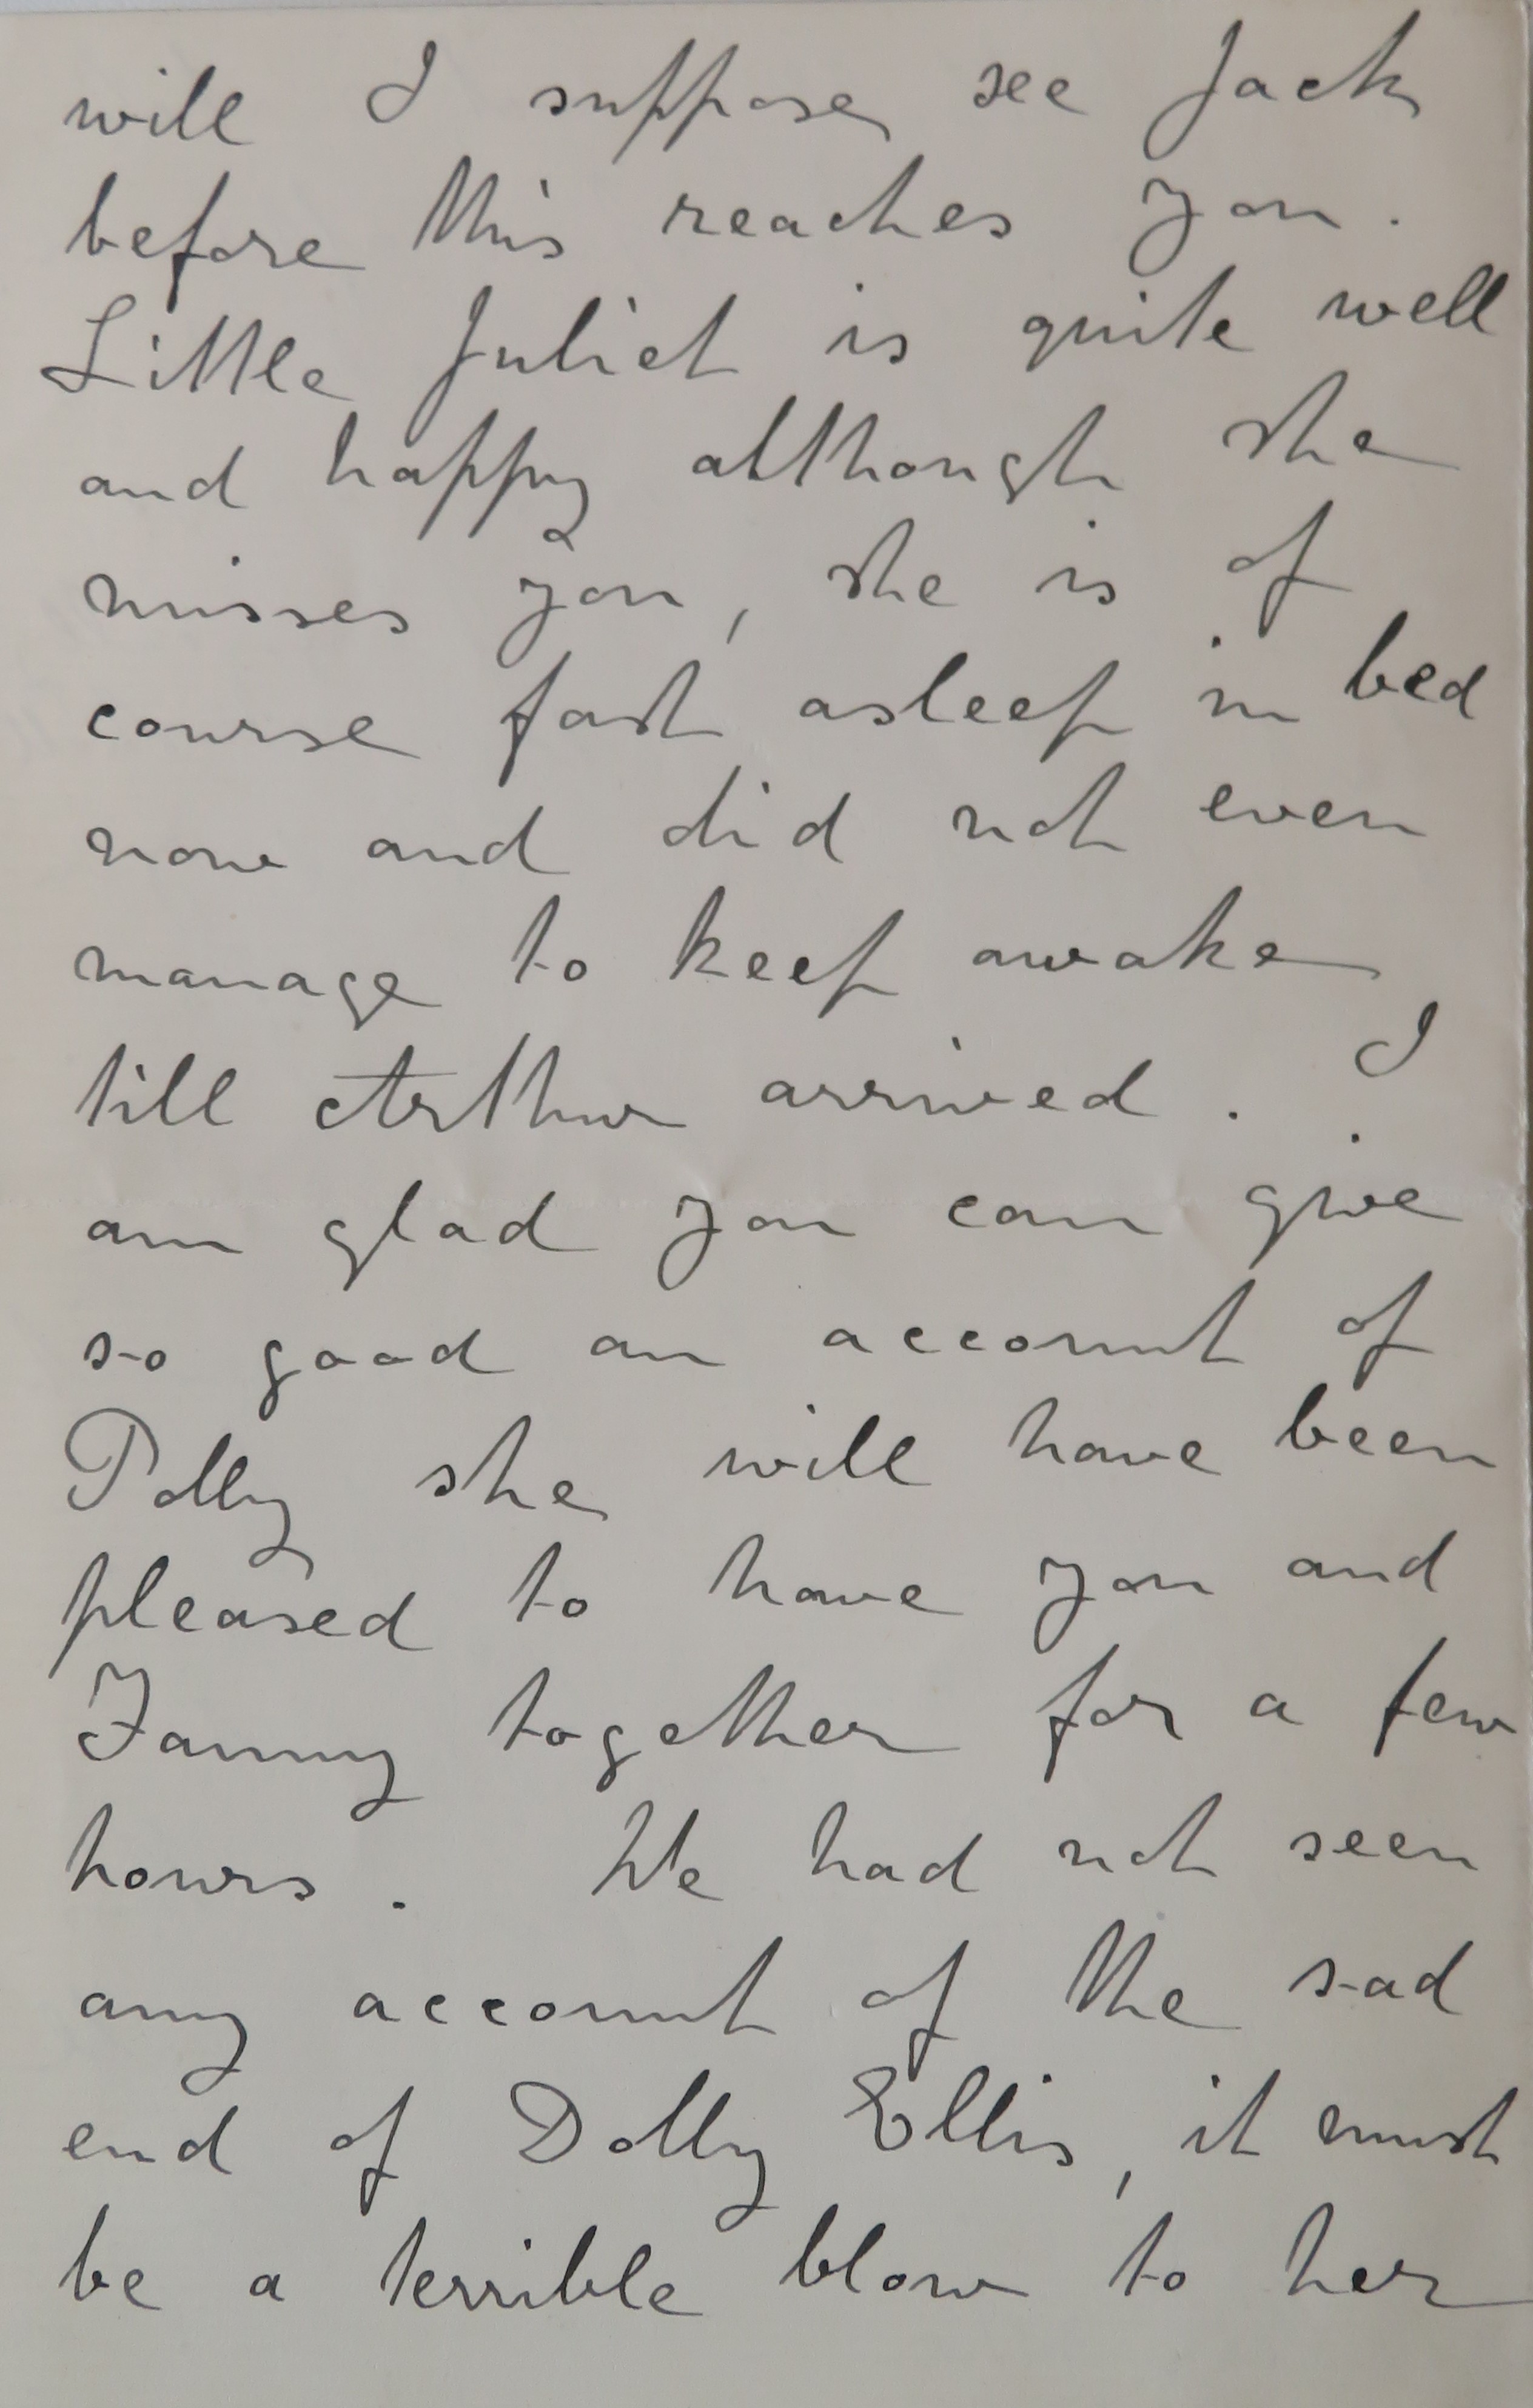 will I suppose see Jack
before this reaches you.
Little Juliet is quite well
and happy although she
misses you, she is of
course fast asleep in bed
now and did not even
manage to keep awake
till Arthur arrived. I
am glad you can give
so good an account of
Polly she will have been
pleased to have you and
Fanny together for a few
hours. We had not seen
any account of the sad
end of Dolly Ellis, it must
be a terrible blow to her